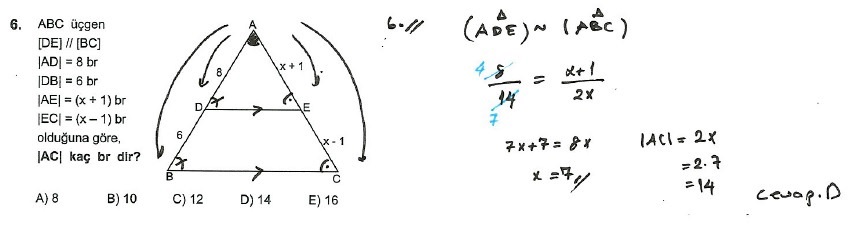 6. ABC üçgen
[DE] // [BC]
|AD| = 8 br
|DB| = 6 br
|AE| = (x + 1) br
|EC| = (x – 1) br
olduğuna göre,
|AC| kaç br dir?
A
8
x + 1
D
E
6
x - 1
B
C
A) 8 B) 10 C) 12 D) 14 E) 16
6.//
(ADE) ~ (ABC)
4 8 / 14 7 = x+1 / 2x
7x+7 = 8x
x = 7//
|AC| = 2x
= 2.7
= 14
Cevap. D